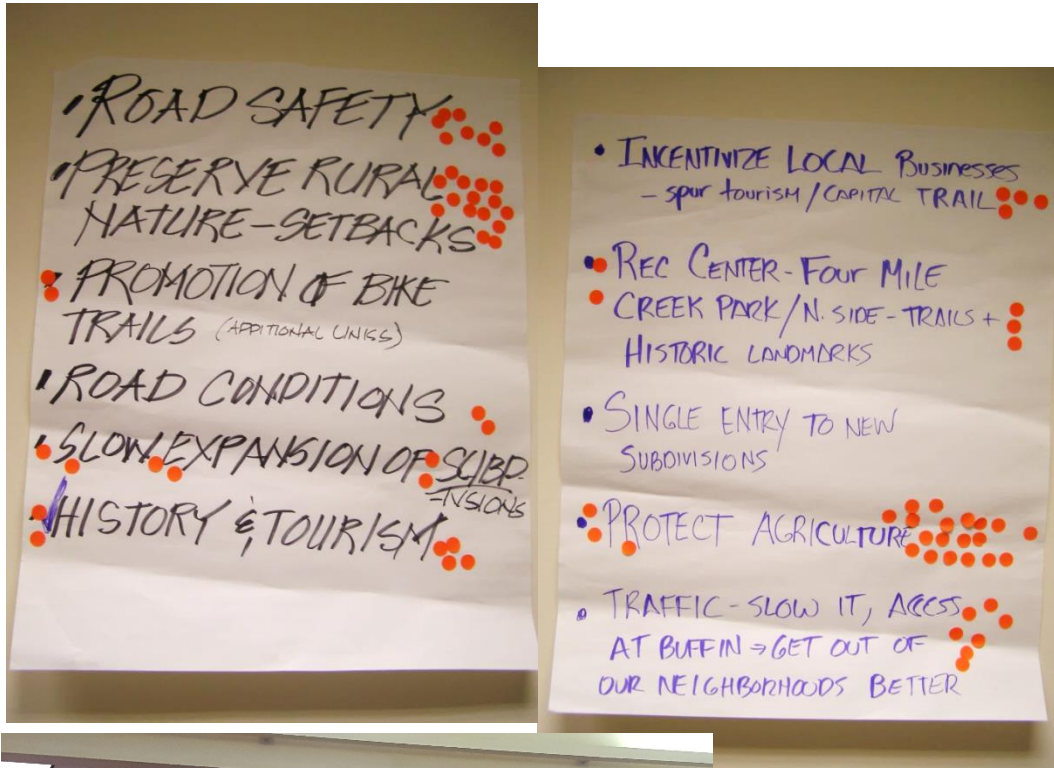 • ROAD SAFETY
• PRESERVE RURAL
NATURE-SETBACKS
• PROMOTION OF BIKE
TRAILS (ADDITIONAL LINKS)
• ROAD CONDITIONS
• SLOW EXPANSION OF SUBD-
-IVSIONS
HISTORY & TOURISM
• INCENTIVIZE LOCAL Businesses
- spur tourism / CAPITAL TRAIL
• REC CENTER - FOUR MILE
CREEK PARK / N. SIDE - TRAILS +
HISTORIC LANDMARKS
• SINGLE ENTRY TO NEW
SUBDIVISIONS
• PROTECT AGRICULTURE
• TRAFFIC - SLOW IT, ACCESS
AT BUFFIN ⇒ GET OUT OF
OUR NEIGHBORHOODS BETTER